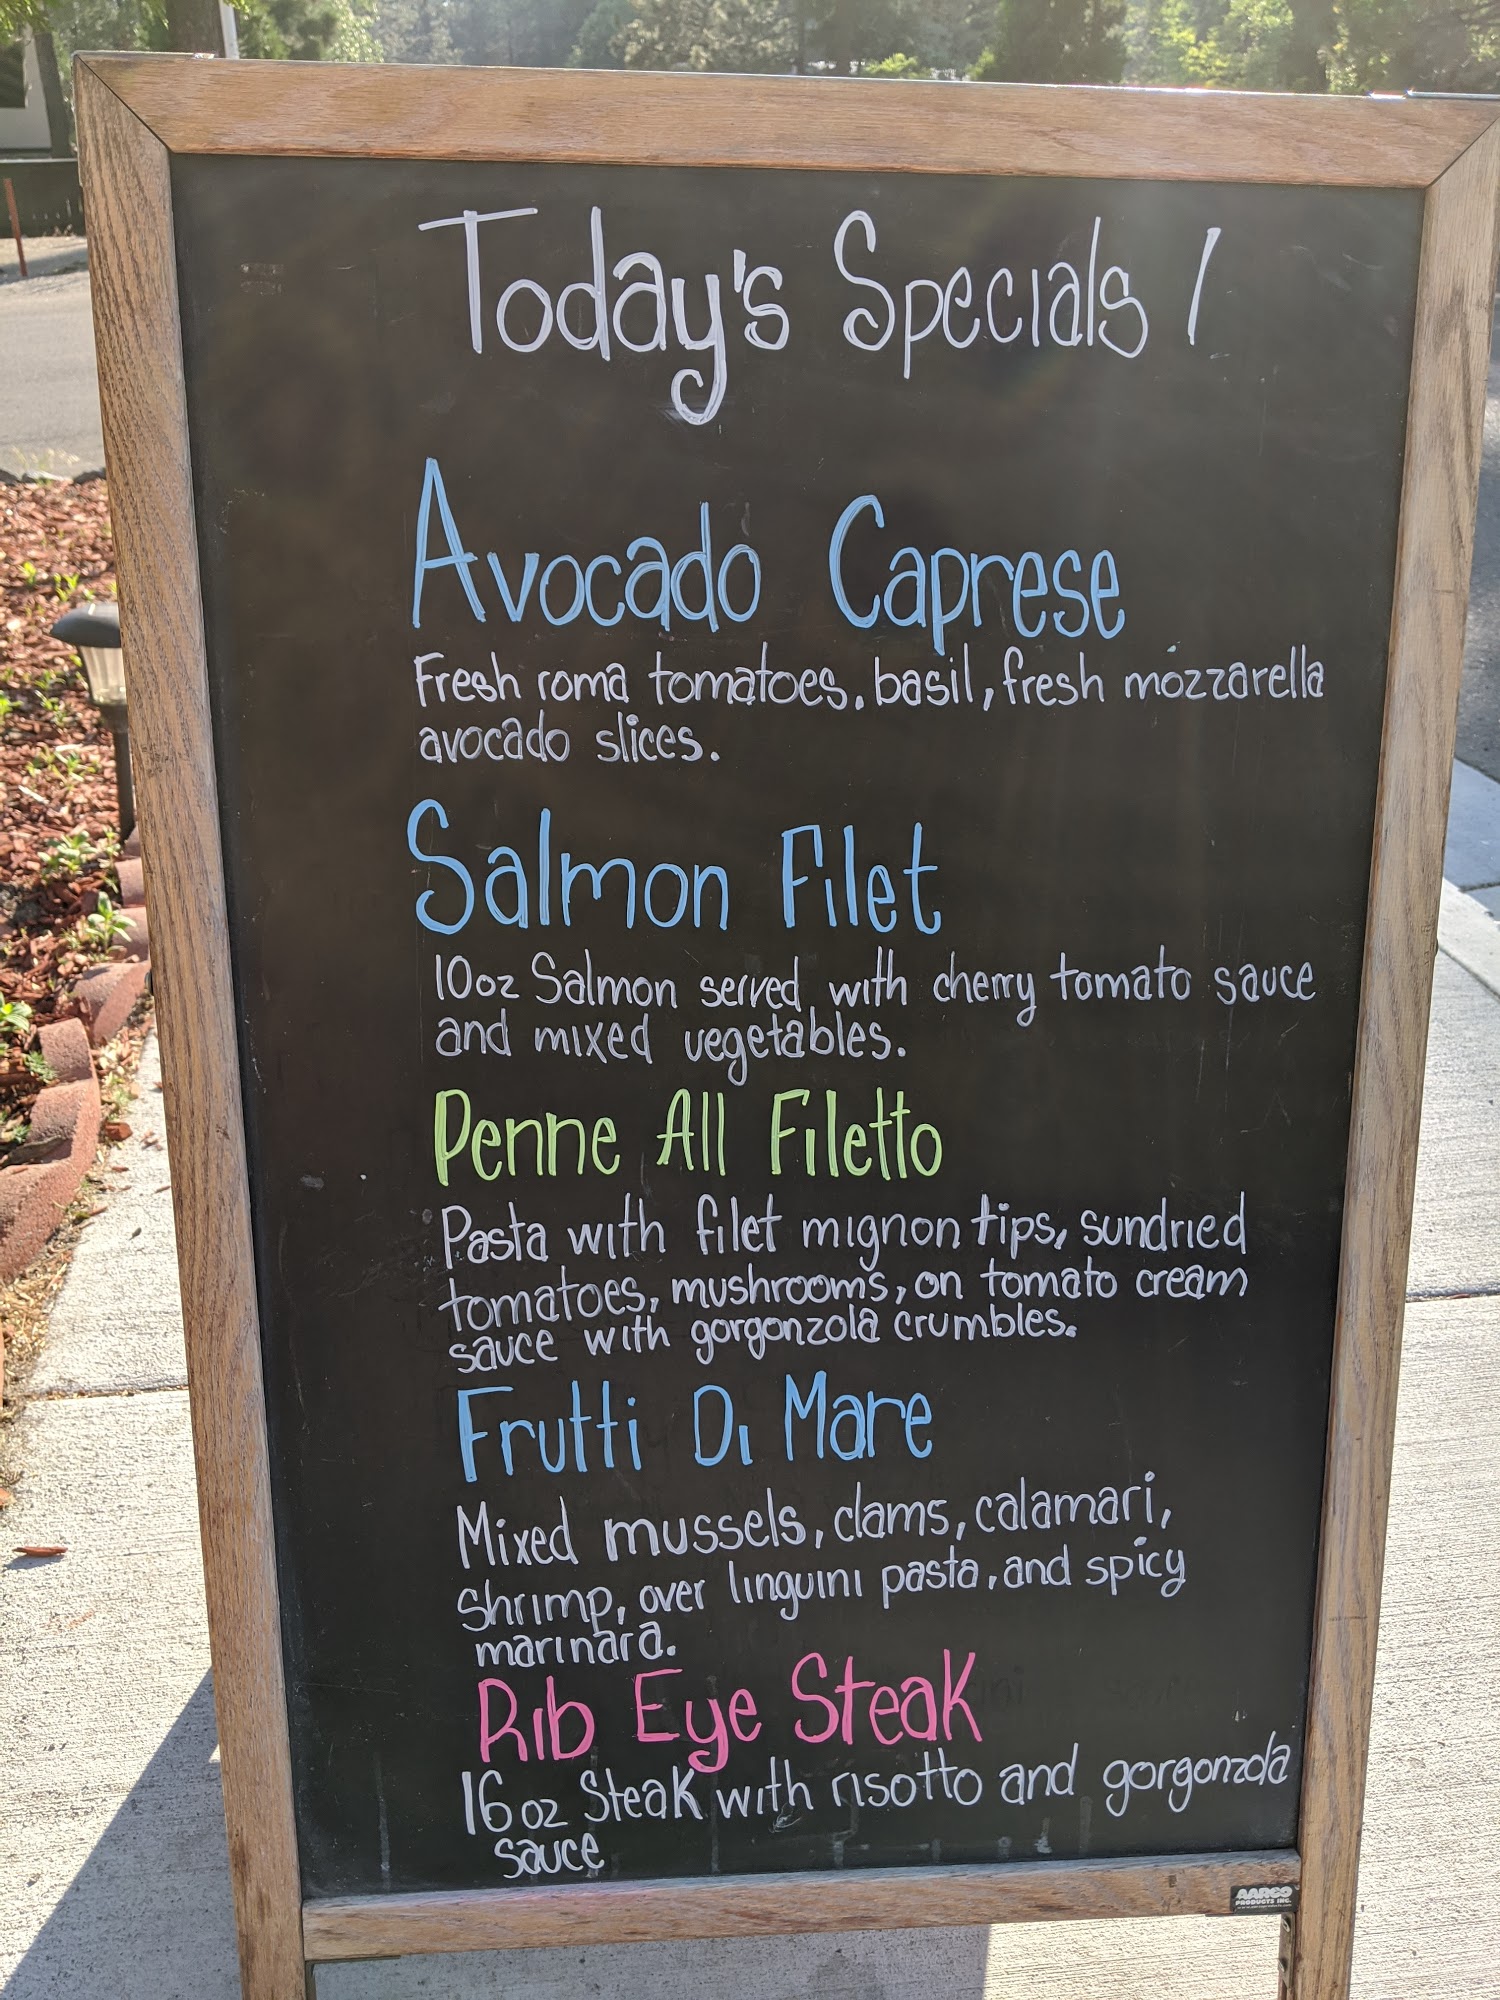 Today's Specials!
Avocado Caprese
Fresh roma tomatoes, basil, fresh mozzarella
avocado slices.
Salmon Filet
10oz Salmon served with cherry tomato sauce
and mixed vegetables.
Penne All Filetto
Pasta with filet mignon tips, sundried
tomatoes, mushrooms, on tomato cream
sauce with gorgonzola crumbles.
Frutti Di Mare
Mixed mussels, clams, calamari,
shrimp, over linguini pasta, and spicy
marinara.
Rib Eye Steak
16oz Steak with risotto and gorgonzola
sauce
AARCO
PRODUCTS INC.